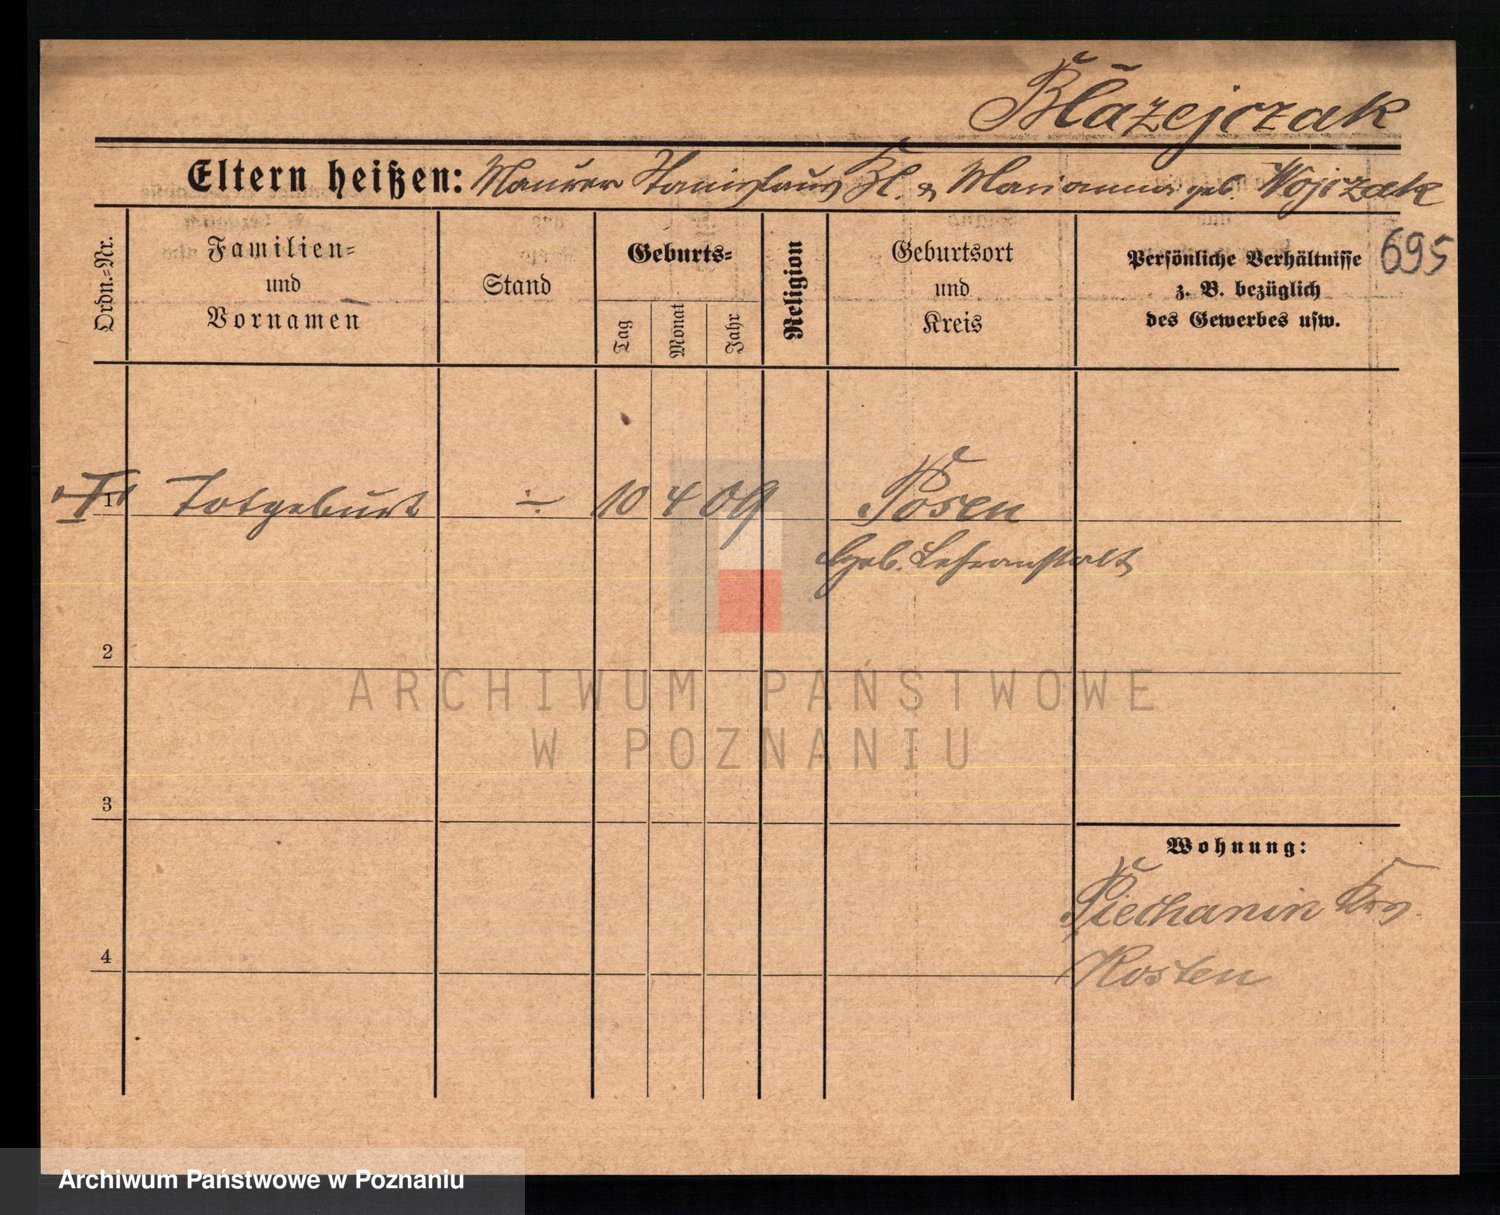 Błażejczak
Eltern heißen: Maurer Stanislaus Bl. & Marianna geb. Wojczak
695
Ordn.-Nr.
Familien-
und
Vornamen
Stand
Geburts-
Tag
Monat
Jahr
Religion
Geburtsort
und
Kreis
Persönliche Verhältnisse
z. B. bezüglich
des Gewerbes usw.
1 Totgeburt ÷ 10 4 09 Posen
Geb. Lehranstalt
2
ARCHIWUM PAŃSTWOWE
W POZNANIU
3
Wohnung:
Piechanin Krs.
4
Kosten
Archiwum Państwowe w Poznaniu